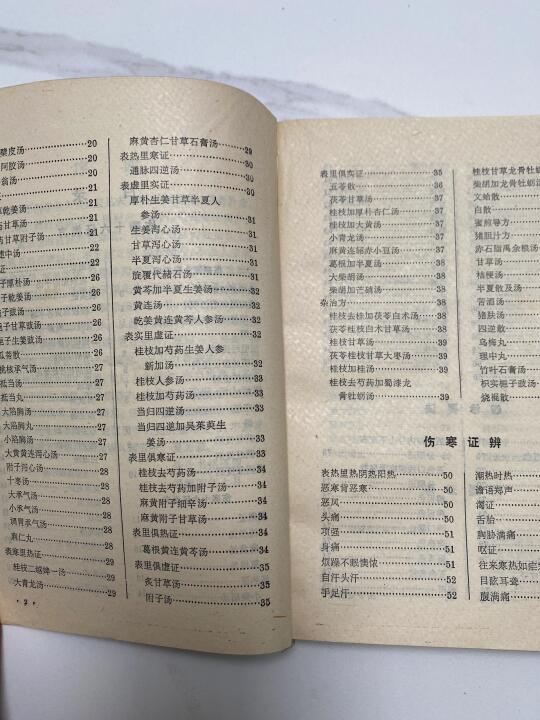 檗皮汤……20
阿胶汤……20
翁汤……20
……21
草乾姜汤……21
药甘草汤……21
药甘草附子汤……21
建中汤……22
证……22
子厚朴汤……25
子乾姜汤……25
子豉汤……26
栀子甘草豉汤……26
栀子生姜豉汤……26
瓜蒂散……26
桃核承气汤……26
抵当汤……27
抵当丸……27
大陷胸汤……27
大陷胸丸……27
小陷胸汤……27
大黄黄连泻心汤……28
附子泻心汤……28
十枣汤……28
大承气汤……28
小承气汤……28
调胃承气汤……28
麻仁丸……28
表寒里热证……29
桂枝二越婢一汤……29
大青龙汤……29
· 2 ·
麻黄杏仁甘草石膏汤……29
表热里寒证……30
通脉四逆汤……30
表虚里实证……30
厚朴生姜甘草半夏人
参汤……31
生姜泻心汤……31
甘草泻心汤……31
半夏泻心汤……31
旋覆代赭石汤……31
黄芩加半夏生姜汤……31
黄连汤……32
乾姜黄连黄芩人参汤……32
表实里虚证……32
桂枝加芍药生姜人参
新加汤……32
桂枝人参汤……33
桂枝加芍药汤……33
当归四逆汤……33
当归四逆加吴茱萸生
姜汤……33
表里俱寒证……33
桂枝去芍药汤……34
桂枝去芍药加附子汤……34
麻黄附子细辛汤……34
麻黄附子甘草汤……34
表里俱热证……34
葛根黄连黄芩汤……34
表里俱虚证……35
炙甘草汤……35
附子汤……35
表里俱实证……35
五苓散……36
茯苓甘草汤……37
桂枝加厚朴杏仁汤……37
桂枝加大黄汤……37
小青龙汤……37
麻黄连轺赤小豆汤……37
葛根加半夏汤……38
大柴胡汤……38
柴胡加芒硝汤……38
杂治方……38
桂枝去桂加茯苓白术汤……38
茯苓桂枝白术甘草汤……38
茯苓桂枝甘草大枣汤……38
桂枝加桂汤……39
桂枝去芍药加蜀漆龙
骨牡蛎汤……39
桂枝甘草龙骨牡蛎汤
柴胡加龙骨牡蛎汤
文蛤散
白散
蜜煎导方
猪胆汁方
赤石脂禹余粮汤
甘草汤
桔梗汤
半夏散及汤
苦酒汤
猪肤汤
四逆散
乌梅丸
理中丸
竹叶石膏汤
枳实栀子豉汤
烧裩散
伤寒证辨
表热里热阴热阳热……50
恶寒背恶寒……50
恶风……50
头痛……51
项强……51
身痛……51
烦躁不眠懊憹……51
自汗头汗……52
手足汗……52
潮热时热
谵语郑声
渴证
舌胎
胸胁满痛
呕证
往来寒热如疟
目眩耳聋
腹满痛